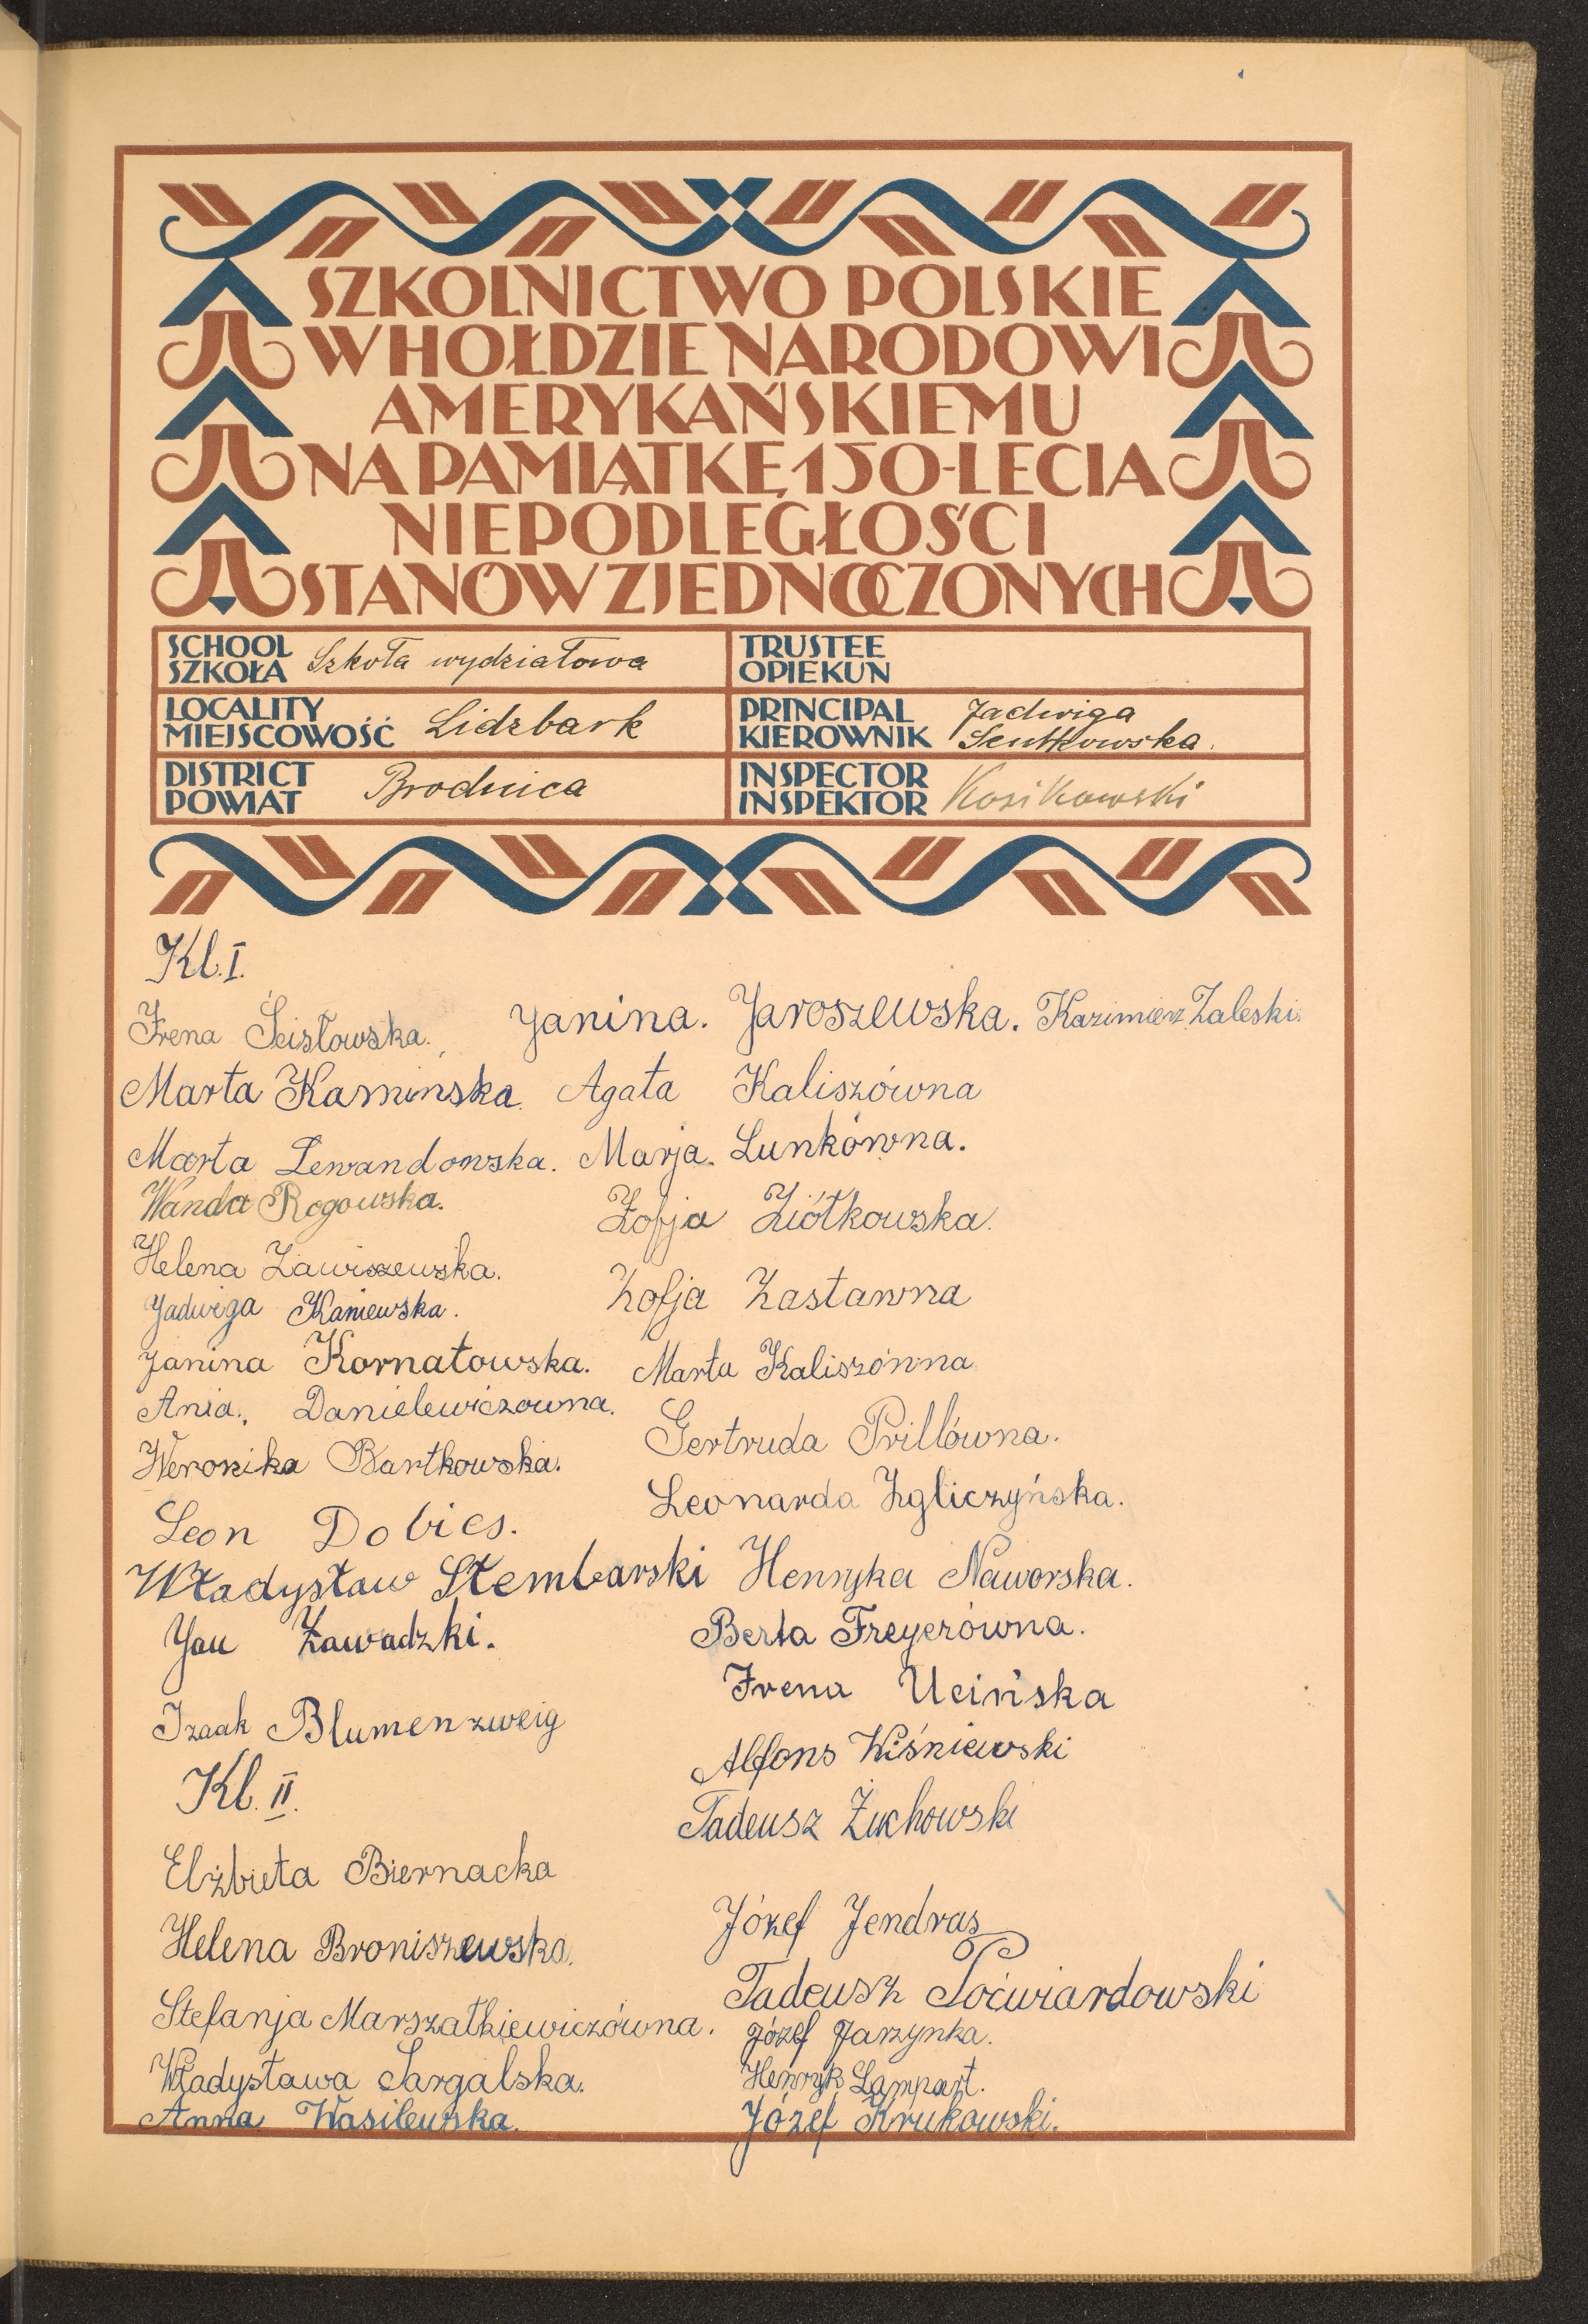 SZKOLNICTWO POLSKIE
W HOŁDZIE NARODOWI
AMERYKAŃSKIEMU
NA PAMIĄTKĘ 150-LECIA
NIEPODLEGŁOŚCI
STANÓW ZJEDNOCZONYCH
SCHOOL
SZKOŁA Szkoła wydziałowa
TRUSTEE
OPIEKUN
LOCALITY
MIEJSCOWOŚĆ Lidzbark
PRINCIPAL Jadwiga
KIEROWNIK Sentkowska.
DISTRICT
POWIAT Brodnica
INSPECTOR
INSPEKTOR Kosikowski
Kl. I.
Irena Ścisłowska. Janina. Jaroszewska. Kazimierz Zaleski.
Marta Kaminska. Agata Kaliszówna
Marta Lewandowska. Marja. Lunkówna.
Wanda Rogowska. Zofja Ziółkowska.
Helena Zawiszewska.
Jadwiga Kaniewska. Zofja Zastawna
Janina Kornatowska. Marta Kaliszówna
Ania. Danielewiczowna.
Gertruda Prillówna.
Weronika Bartkowska.
Leonarda Zgliczyńska.
Leon Dobies.
Władysław Stembarski Henryka Naworska.
Jan Zawadzki. Berta Freyerówna.
Irena Ucińska
Izaak Blumenzweig
Alfons Wiśniewski
Kl. II.
Tadeusz Żuchowski
Elżbieta Biernacka
Józef Jendras
Helena Broniszewska.
Tadeusz Poćwiardowski
Stefanja Marszałkiewiczówna. Józef Jarzynka.
Władysława Sargalska. Henryk Lampart.
Anna Wasilewska. Józef Krukowski.